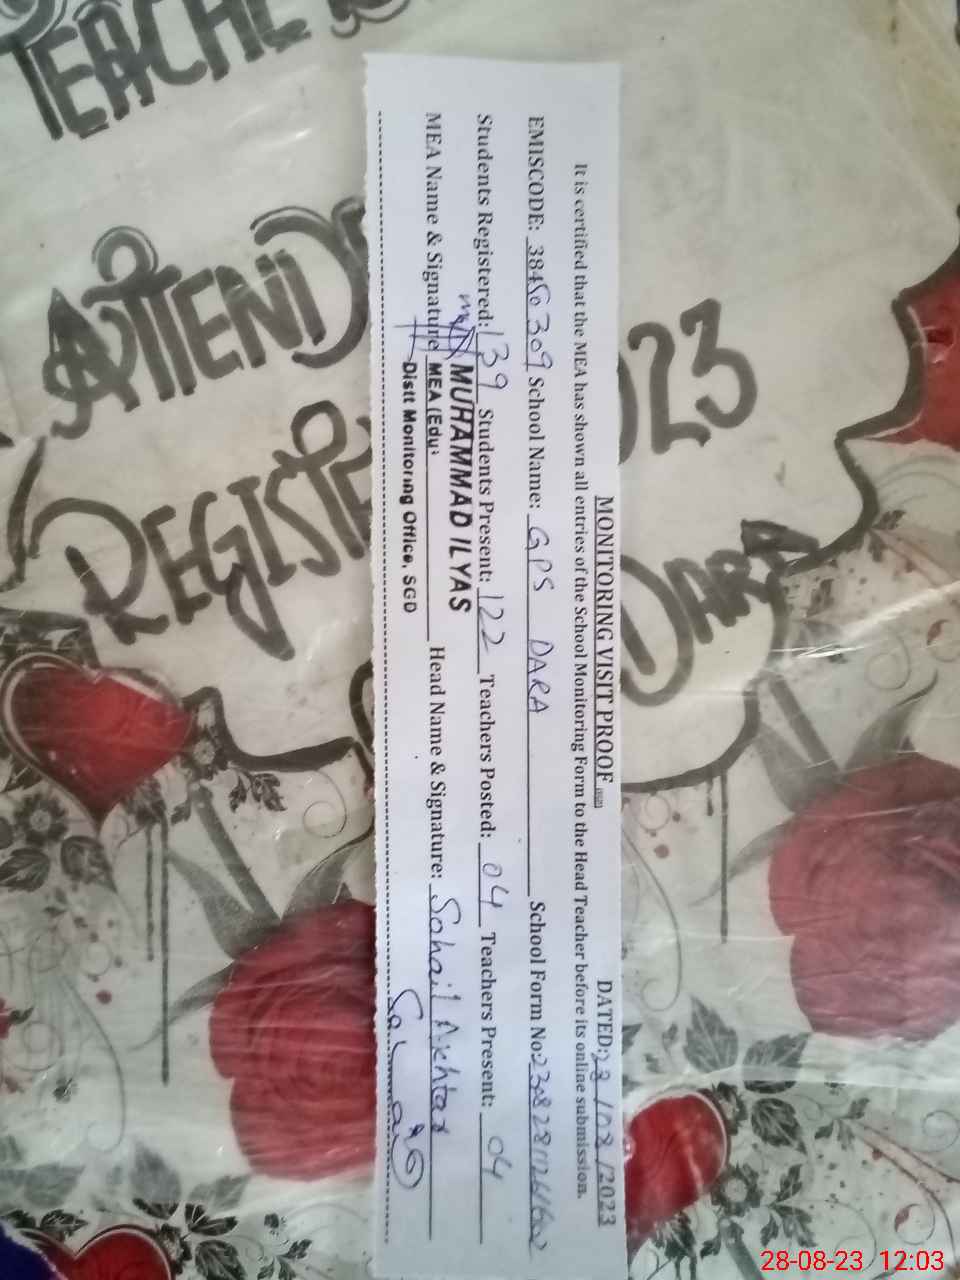 TEACHE
ATTENDE
REGISTE
2023
DARA
MONITORING VISIT PROOF
DATED: 28 /08 /2023
It is certified that the MEA has shown all entries of the School Monitoring Form to the Head Teacher before its online submission.
EMISCODE: 38450309 School Name: GPS DARA School Form No:
Students Registered: 139 Students Present: 122 Teachers Posted: 04 Teachers Present: 04
MUHAMMAD ILYAS
MEA Name & Signature MEA (Edu: Head Name & Signature: Sohail Akhtar
Distt Monitoring Office, SGD
28-08-23 12:03